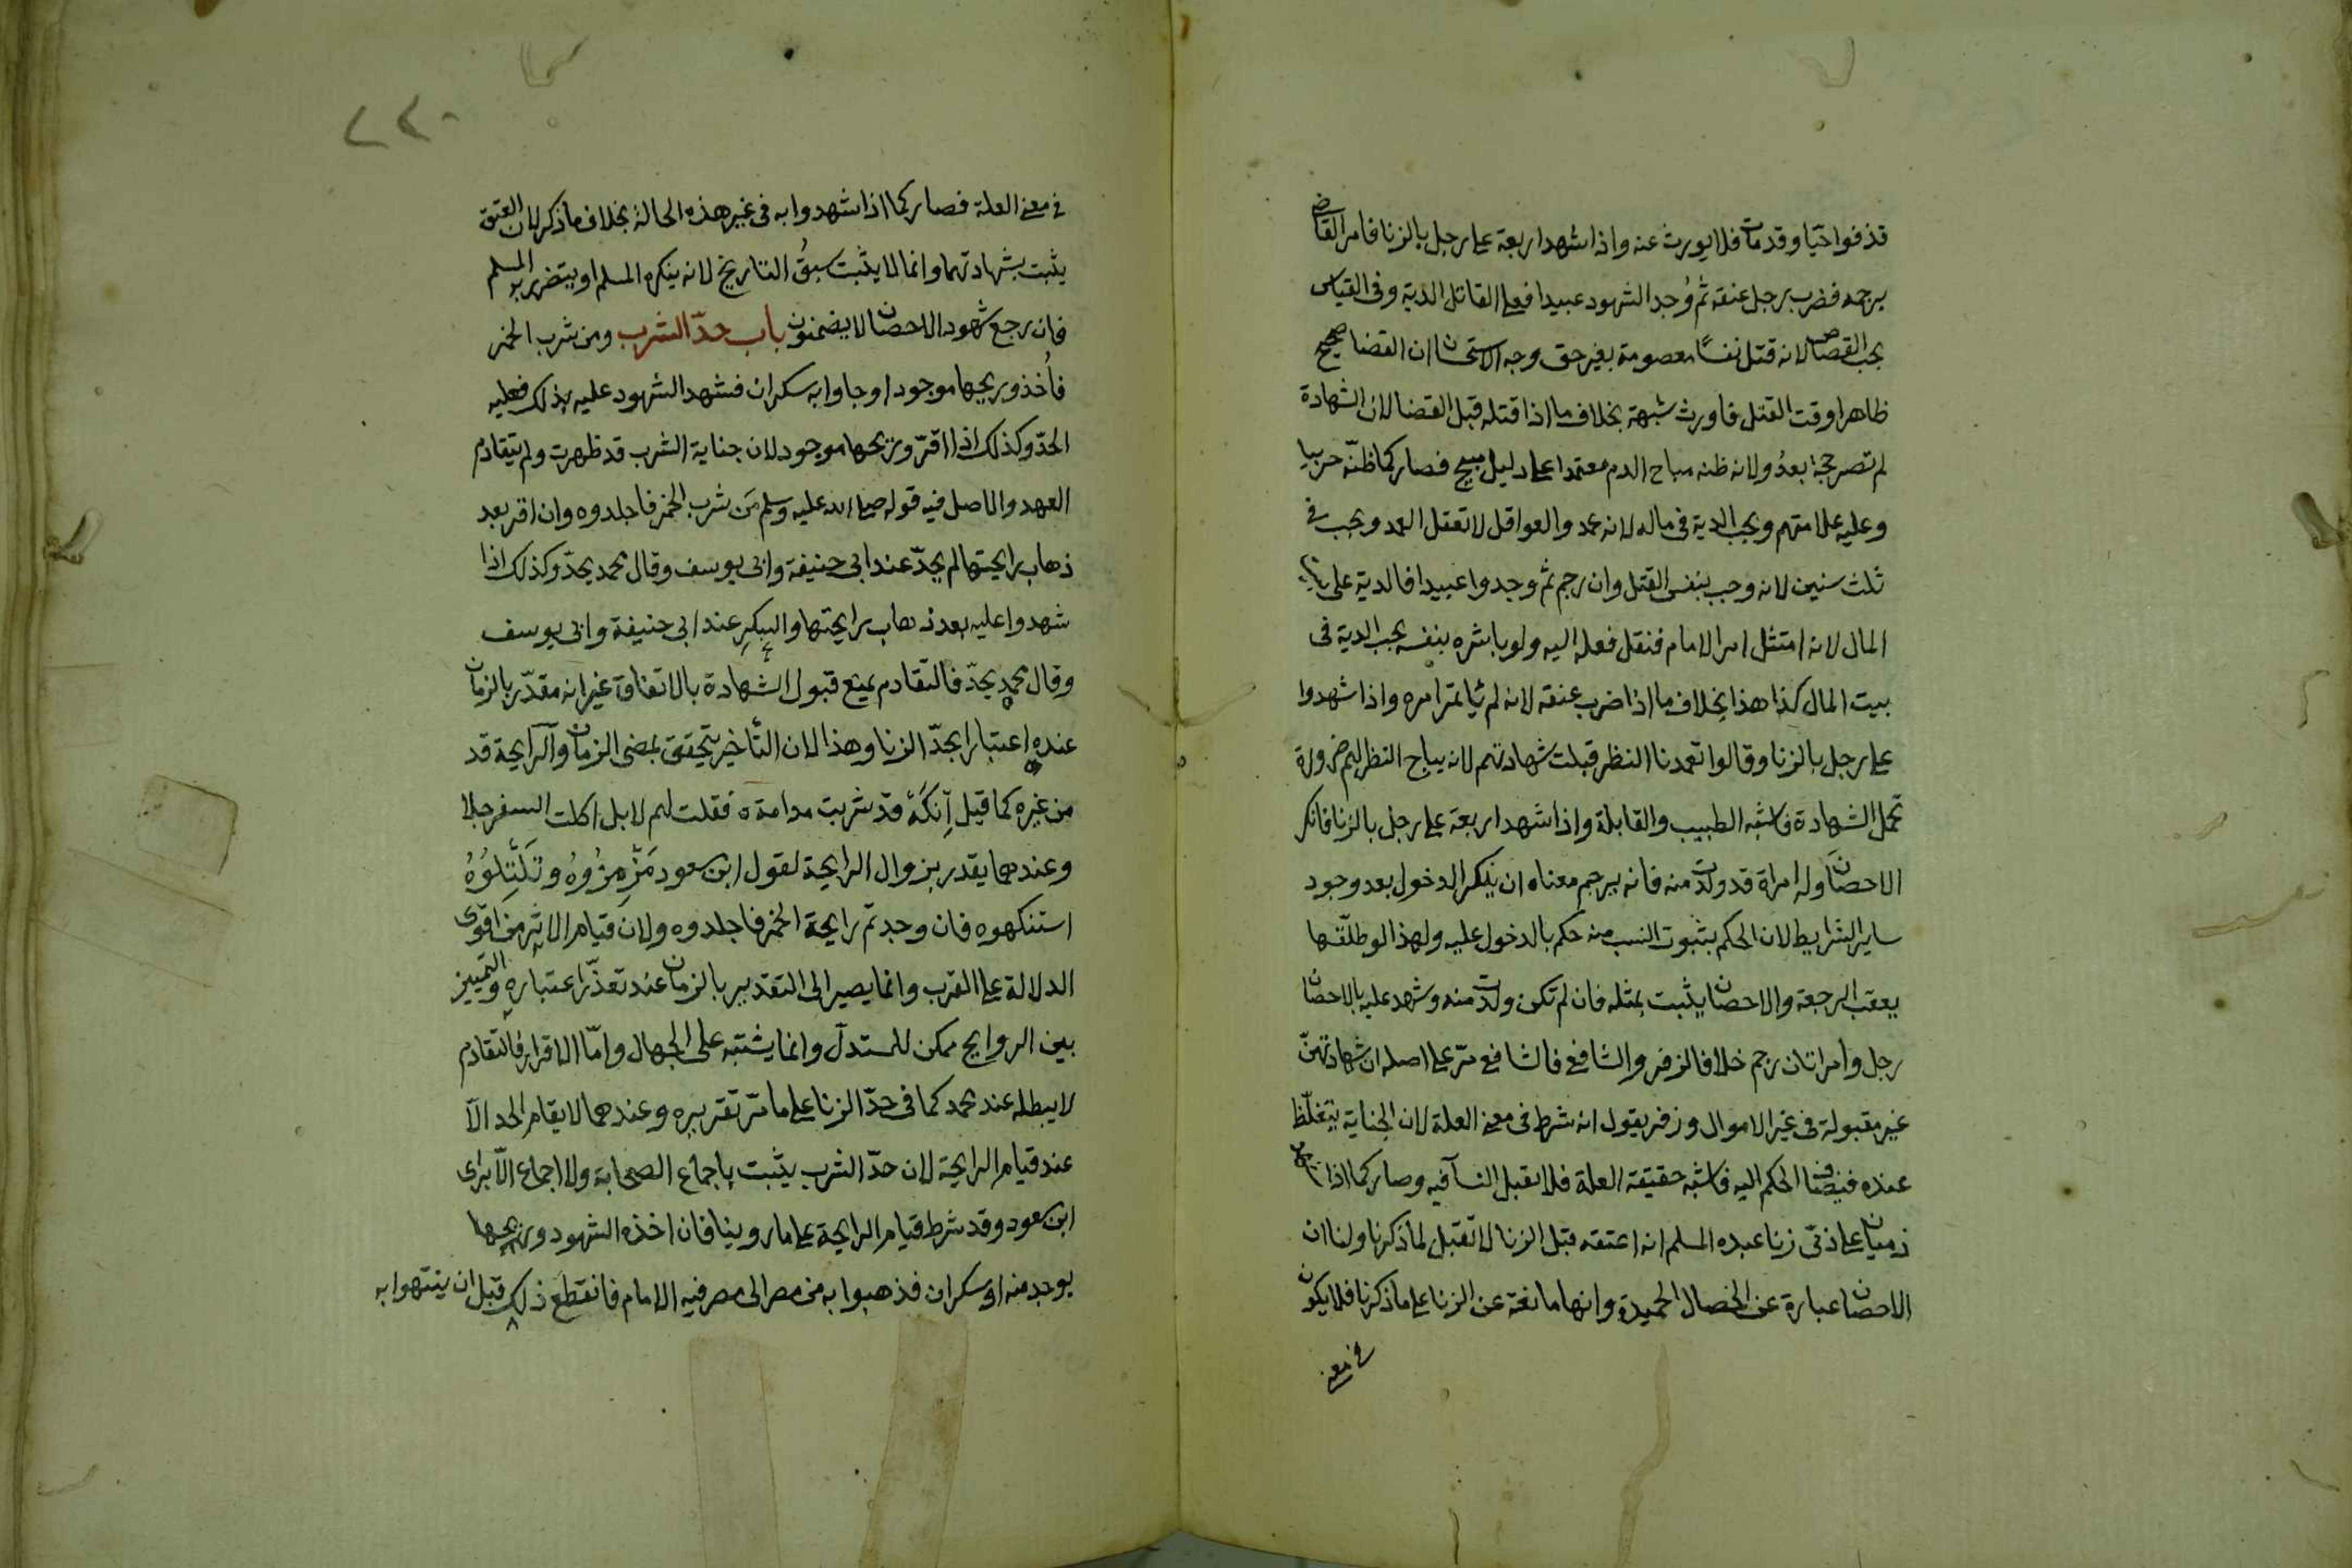 قذفوا حيّا وقد مات فلا يورث عنه واذا شهد اربعة على رجل بالزنا فامر القاضى
برجمه فضرب رجل عنقه ثم وُجد الشهود عبيدا فعلى القاتل الدية وفى القياس
يجب القصاص لانه قتل نفسًا معصومة بغير حق وجه الاستحسان ان القضا صحيح
ظاهرا وقت القتل فاورث شبهة بخلاف ما اذا قتله قبل القضا لان الشهادة
لم تصر حجة بعدُ ولانه ظنه مباح الدم معتمدا على دليل مبيح فصار كما ظنّه حربيا
وعليه علامتهم ويجب الدية فى ماله لانه عمد والعواقل لا تعقل العمد ويجب فى
ثلث سنين لانه وجب بنفس القتل وان رجم ثم وجدوا عبيدا فالدية على بيت
المال لانه امتثل امر الامام فنقل فعله اليه ولو باشره بنفسه يجب الدية فى
بيت المال كذا هذا بخلاف ما اذا ضرب عنقه لانه لم يأتمر امره واذا شهدوا
على رجل بالزنا وقالوا تعمدنا النظر قبلت شهادتهم لانه يباح النظر لهم ضرورة
تحمل الشهادة فاشبه الطبيب والقابلة واذا شهد اربعة على رجل بالزنا فانكر
الاحصان وله امراة قد ولدت منه فانه يرجم معناه ان ينكر الدخول بعد وجود
ساير الشرايط لان الحكم بثبوت النسب منه حكم بالدخول عليه ولهذا لو طلّقها
يعقب الرجعة والاحصان يثبت بمثله فان لم تكن ولدت منه وشهد عليه بالاحصان
رجل وامراتان رجم خلافا لزفر والشافعى فالشافعى مرّ على اصله ان شهادتهنّ
غير مقبولة فى غير الاموال وزفر يقول انه شرط فى معنى العلة لان الجناية يتغلّظ
عنده فيضاف الحكم اليه فاشبه حقيقة العلة فلا تقبل النسآ فيه وصار كما اذا شهد
ذميان على ذمّى زنا عبده المسلم انه اعتقه قبل الزنا لا تقبل لما ذكرنا ولنا ان
الاحصان عبارة عن الخصال الحميدة وانها مانعة عن الزنا على ما ذكرنا فلا يكون
فى معنى
٢٢٠
فى معنى العلة فصار كما اذا شهدوا به فى غير هذه الحالة بخلاف ما ذكر لان العتق
يثبت بشهادتهما وانما لا يثبت سبقُ التاريخ لانه ينكره المسلم او يتضرر به المسلم
فان رجع شهود الاحصان لا يضمنون باب حدّ الشرب ومن شرب الخمر
فاُخذ وريحها موجود او جاوا به سكران فشهد الشهود عليه بذلك فعليه
الحدّ وكذلك اذا اقرّ وريحها موجود لان جناية الشرب قد ظهرت ولم يتقادم
العهد والاصل فيه قوله صلى الله عليه وسلم مَن شرب الخمر فاجلدوه وان اقر بعد
ذهاب رايحتها لم يحدّ عند ابى حنيفة وابى يوسف وقال محمد يحدّ وكذلك اذا
شهدوا عليه بعد ذهاب رايحتها والسكر عند ابى حنيفة وابى يوسف
وقال محمد يحدّ فالتقادم يمنع قبول الشهادة بالاتفاق غير انه مقدّر بالزمان
عنده اعتبارا بحدّ الزنا وهذا لان التأخير يتحقق بمضى الزمان والرايحة قد
من غيره كما قيل اِنكَهْ قد شربت مدامة فقلت لهم لا بل اكلت السفرجلا
وعندهما يقدر بزوال الرايحة لقول ابن مسعود مَزْمِزُوهُ وتَلْتِلُوهُ
استنكهوه فان وجدتم رايحة الخمر فاجلدوه ولان قيام الاثر من اقوى
الدلالة على القرب وانما يصير الى التقدير بالزمان عند تعذّر اعتباره والتمييز
بين الروايح ممكن للمستدلّ وانما يشتبه على الجهال وامّا الاقرار فالتقادم
لا يبطله عند محمد كما فى حدّ الزنا على ما مرّ تقريره وعندهما لا يقام الحد الّا
عند قيام الرايحة لان حدّ الشرب يثبت باجماع الصحابة ولا اجماع الّا برأى
ابن مسعود وقد شرط قيام الرايحة على ما روينا فان اخذه الشهود وريحها
يوجد منه او سكران فذهبوا به من مصر الى مصر فيه الامام فانقطع ذلك قبل ان ينتهوا به